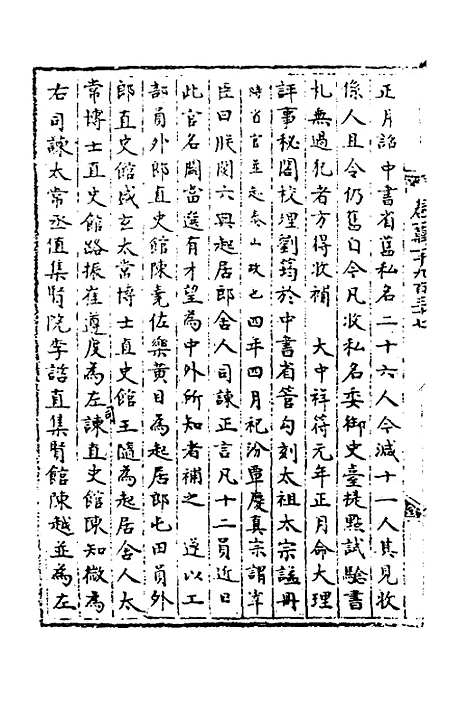 正月詔中書省舊私名二十六人令減十一人其見收
係人且令仍舊自今凡收私名委御史臺提點試驗書
札無過犯者方得收補　大中祥符元年正月命大理
評事秘閣校理劉筠於中書省管勾刻太祖太宗謚冊
時省官並赴泰山故也四年四月祀汾覃慶真宗謂宰
臣曰朕閱六典起居郎舍人司諫正言凡十二員近日
此官名闕當選有才望為中外所知者補之　遂以工
部員外郎直史館陳堯佐樂黃目為起居郎屯田員外
郎直史館盛玄太常博士直史館王隨為起居舍人太
常博士直史館路振崔遵度為左司諫直史館陳知微為
右司諫太常丞值集賢院李諮直集賢館陳越並為左
卷一萬一千九百三十七